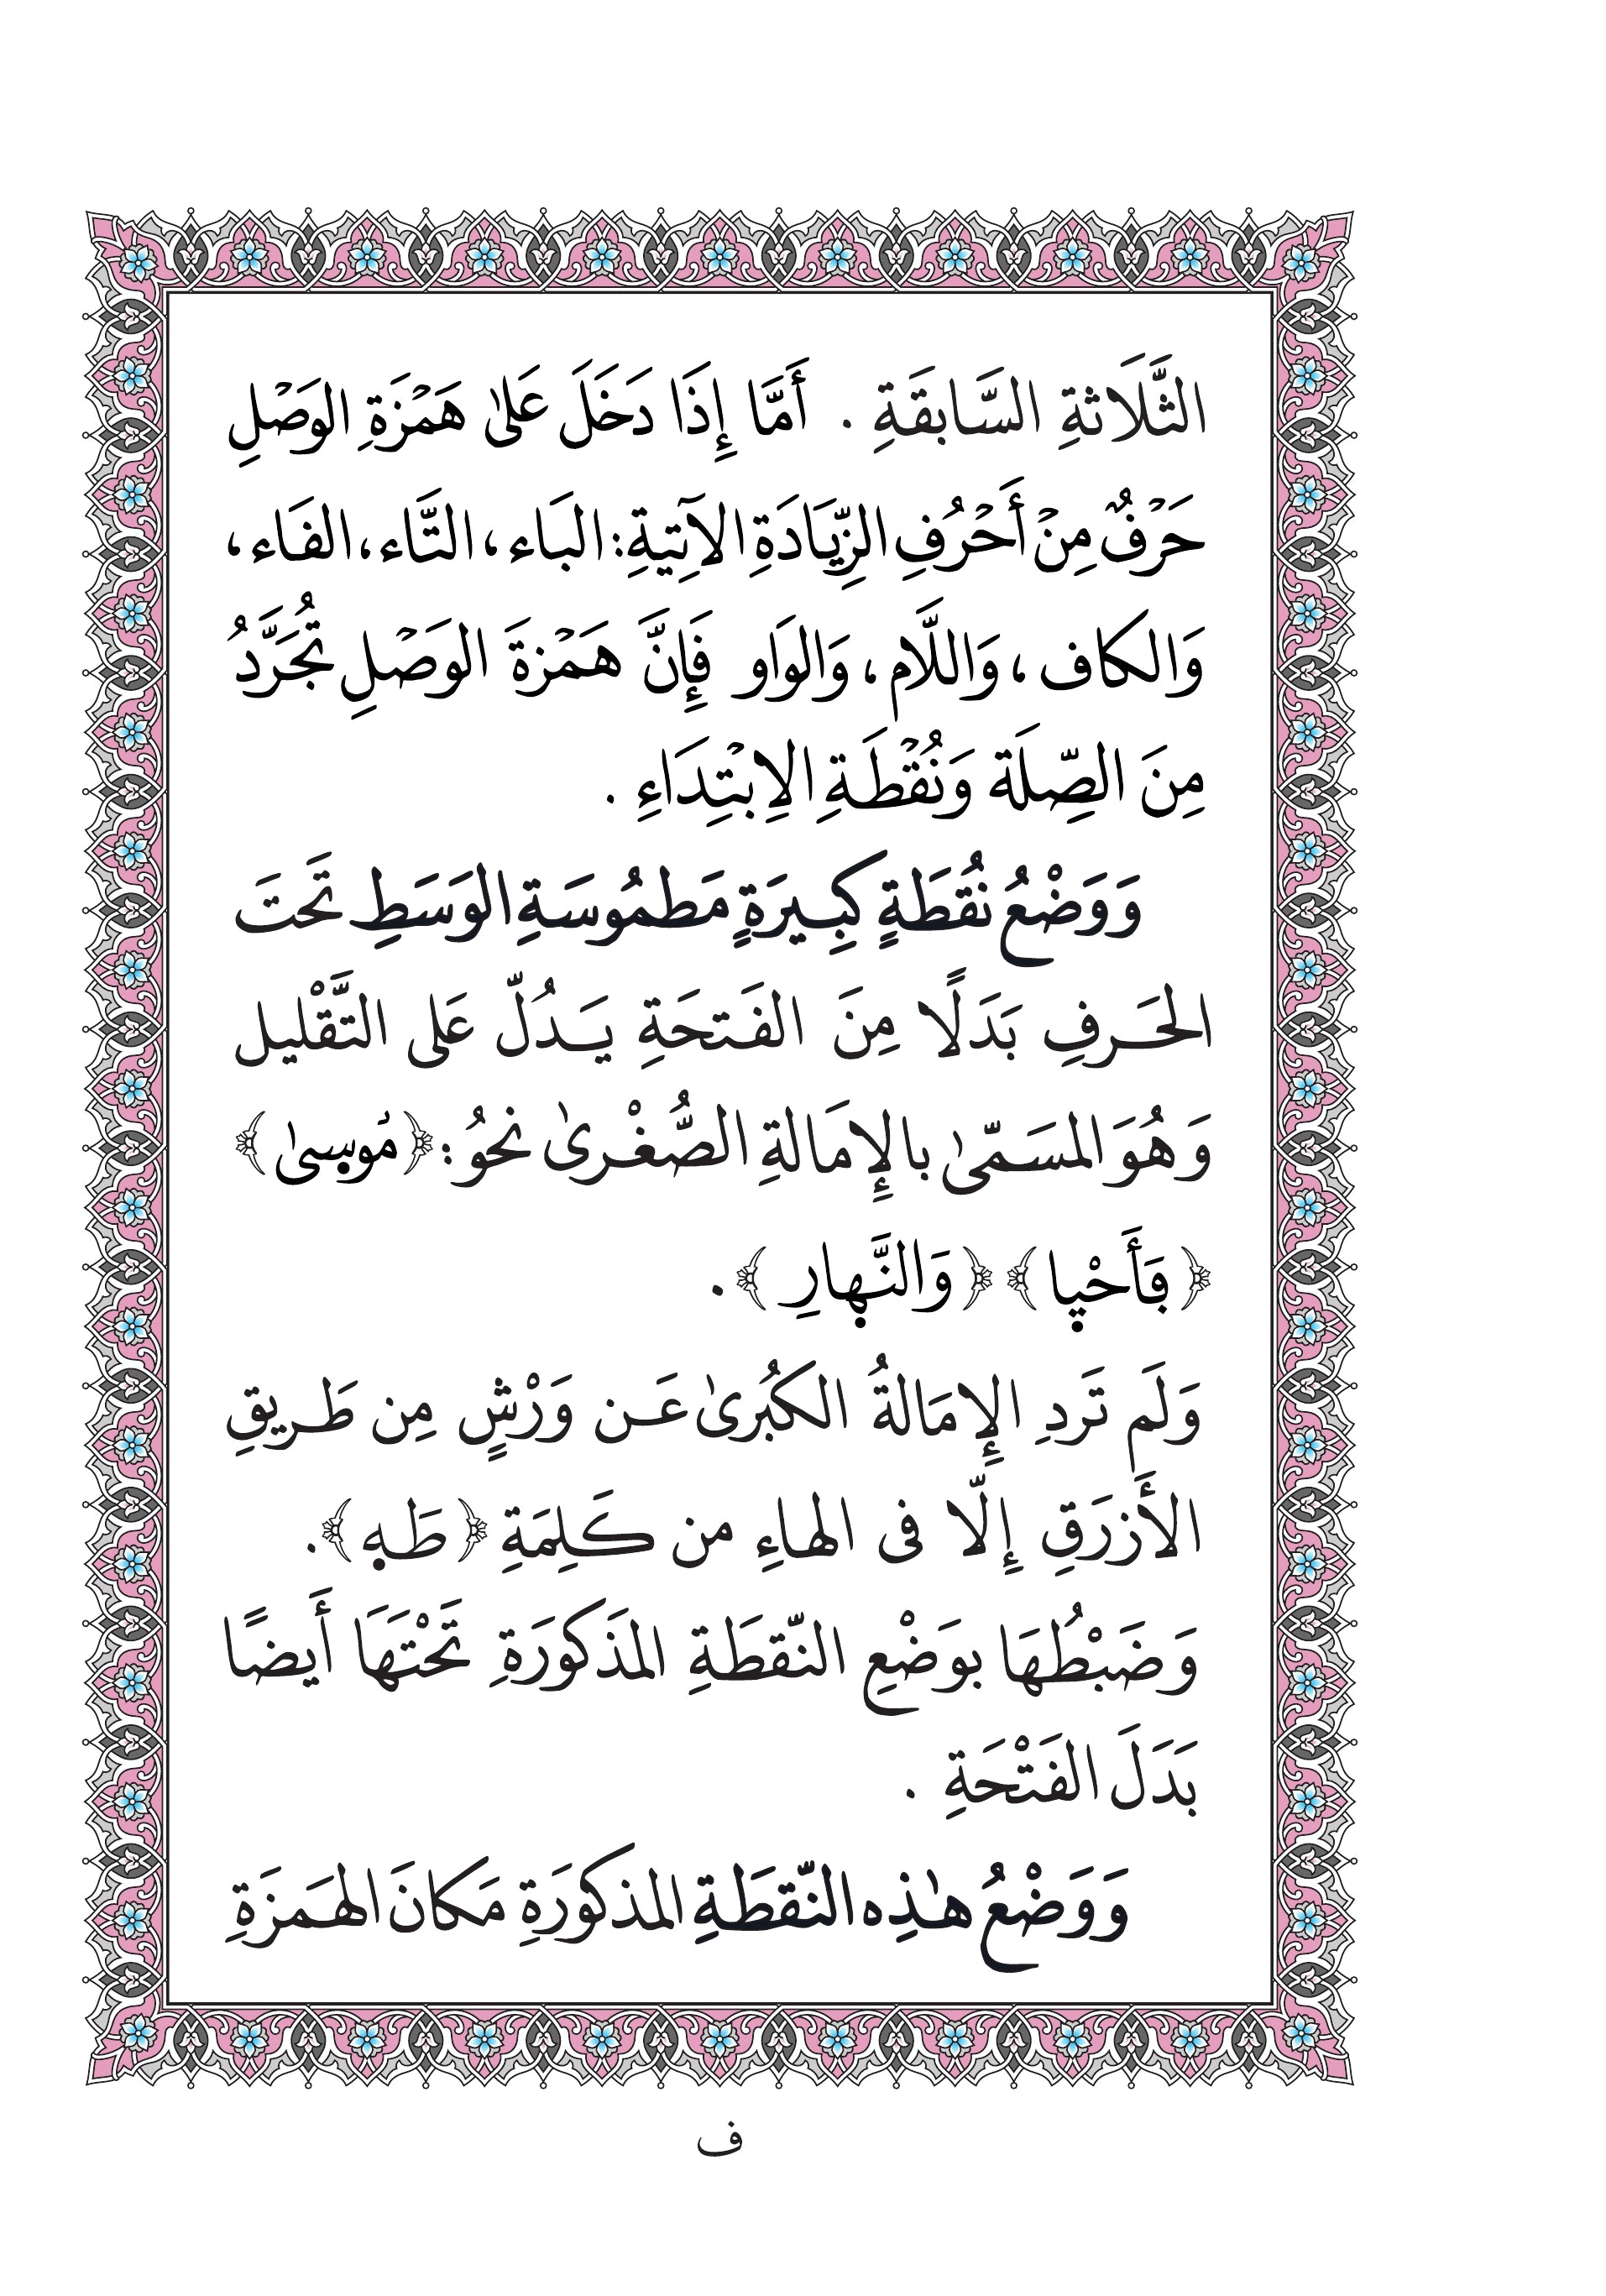 الثَّلَاثةِ السَّابقَةِ . أَمَّا إِذَا دَخَلَ عَلىٰ هَمۡزَةِ الوَصۡلِ
حَرۡفٌ مِنۡ أَحۡرُفِ الزِّيَادَةِ الآتِيةِ: البَاء، التَّاء، الفَاء،
وَالكاف، وَاللَّام، وَالوَاو فَإِنَّ هَمۡزةَ الوَصۡلِ تُجَرَّدُ
مِنَ الصِّلَة وَنُقۡطَةِ الِابۡتِدَاءِ .
وَوَضْعُ نُقَطَةٍ كبِيرَةٍ مَطمُوسَةِ الوَسَطِ تَحتَ
الحَرفِ بَدَلًا مِنَ الفَتحَةِ يَدُلّ عَلى التَّقْليل
وَهُوَ المسَمّىٰ بالإِمَالةِ الصُّغْرىٰ نحوُ: ﴿مُوسىٰ﴾
﴿فَأَحْيا﴾ ﴿وَالنَّهارِ﴾.
وَلَم تَردِ الإِمَالةُ الكبُرىٰ عَن وَرْشٍ مِن طَريقِ
الأَزرَقِ إِلّا فى الهاءِ من كَلِمَةِ ﴿طَه﴾.
وَضَبْطُهَا بوَضْعِ النّقطَةِ المذَكورَةِ تَحْتَهَا أَيضًا
بَدَلَ الفَتْحَةِ .
وَوَضْعُ هٰذِه النّقطَةِ المذكورَةِ مَكانَ الهَمزَةِ
ف